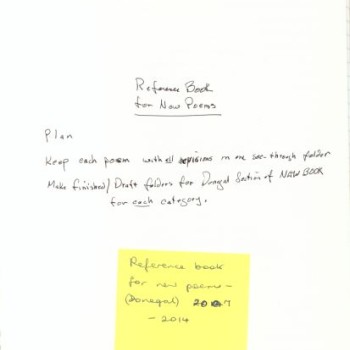 Reference Book
for New Poems
Plan
Keep each poem with all revisions in one see-through folder
Make finished/Draft folders for Donegal Section of NEW BOOK
for each category.
Reference book
for new poems -
(Donegal) 2007
- 2014